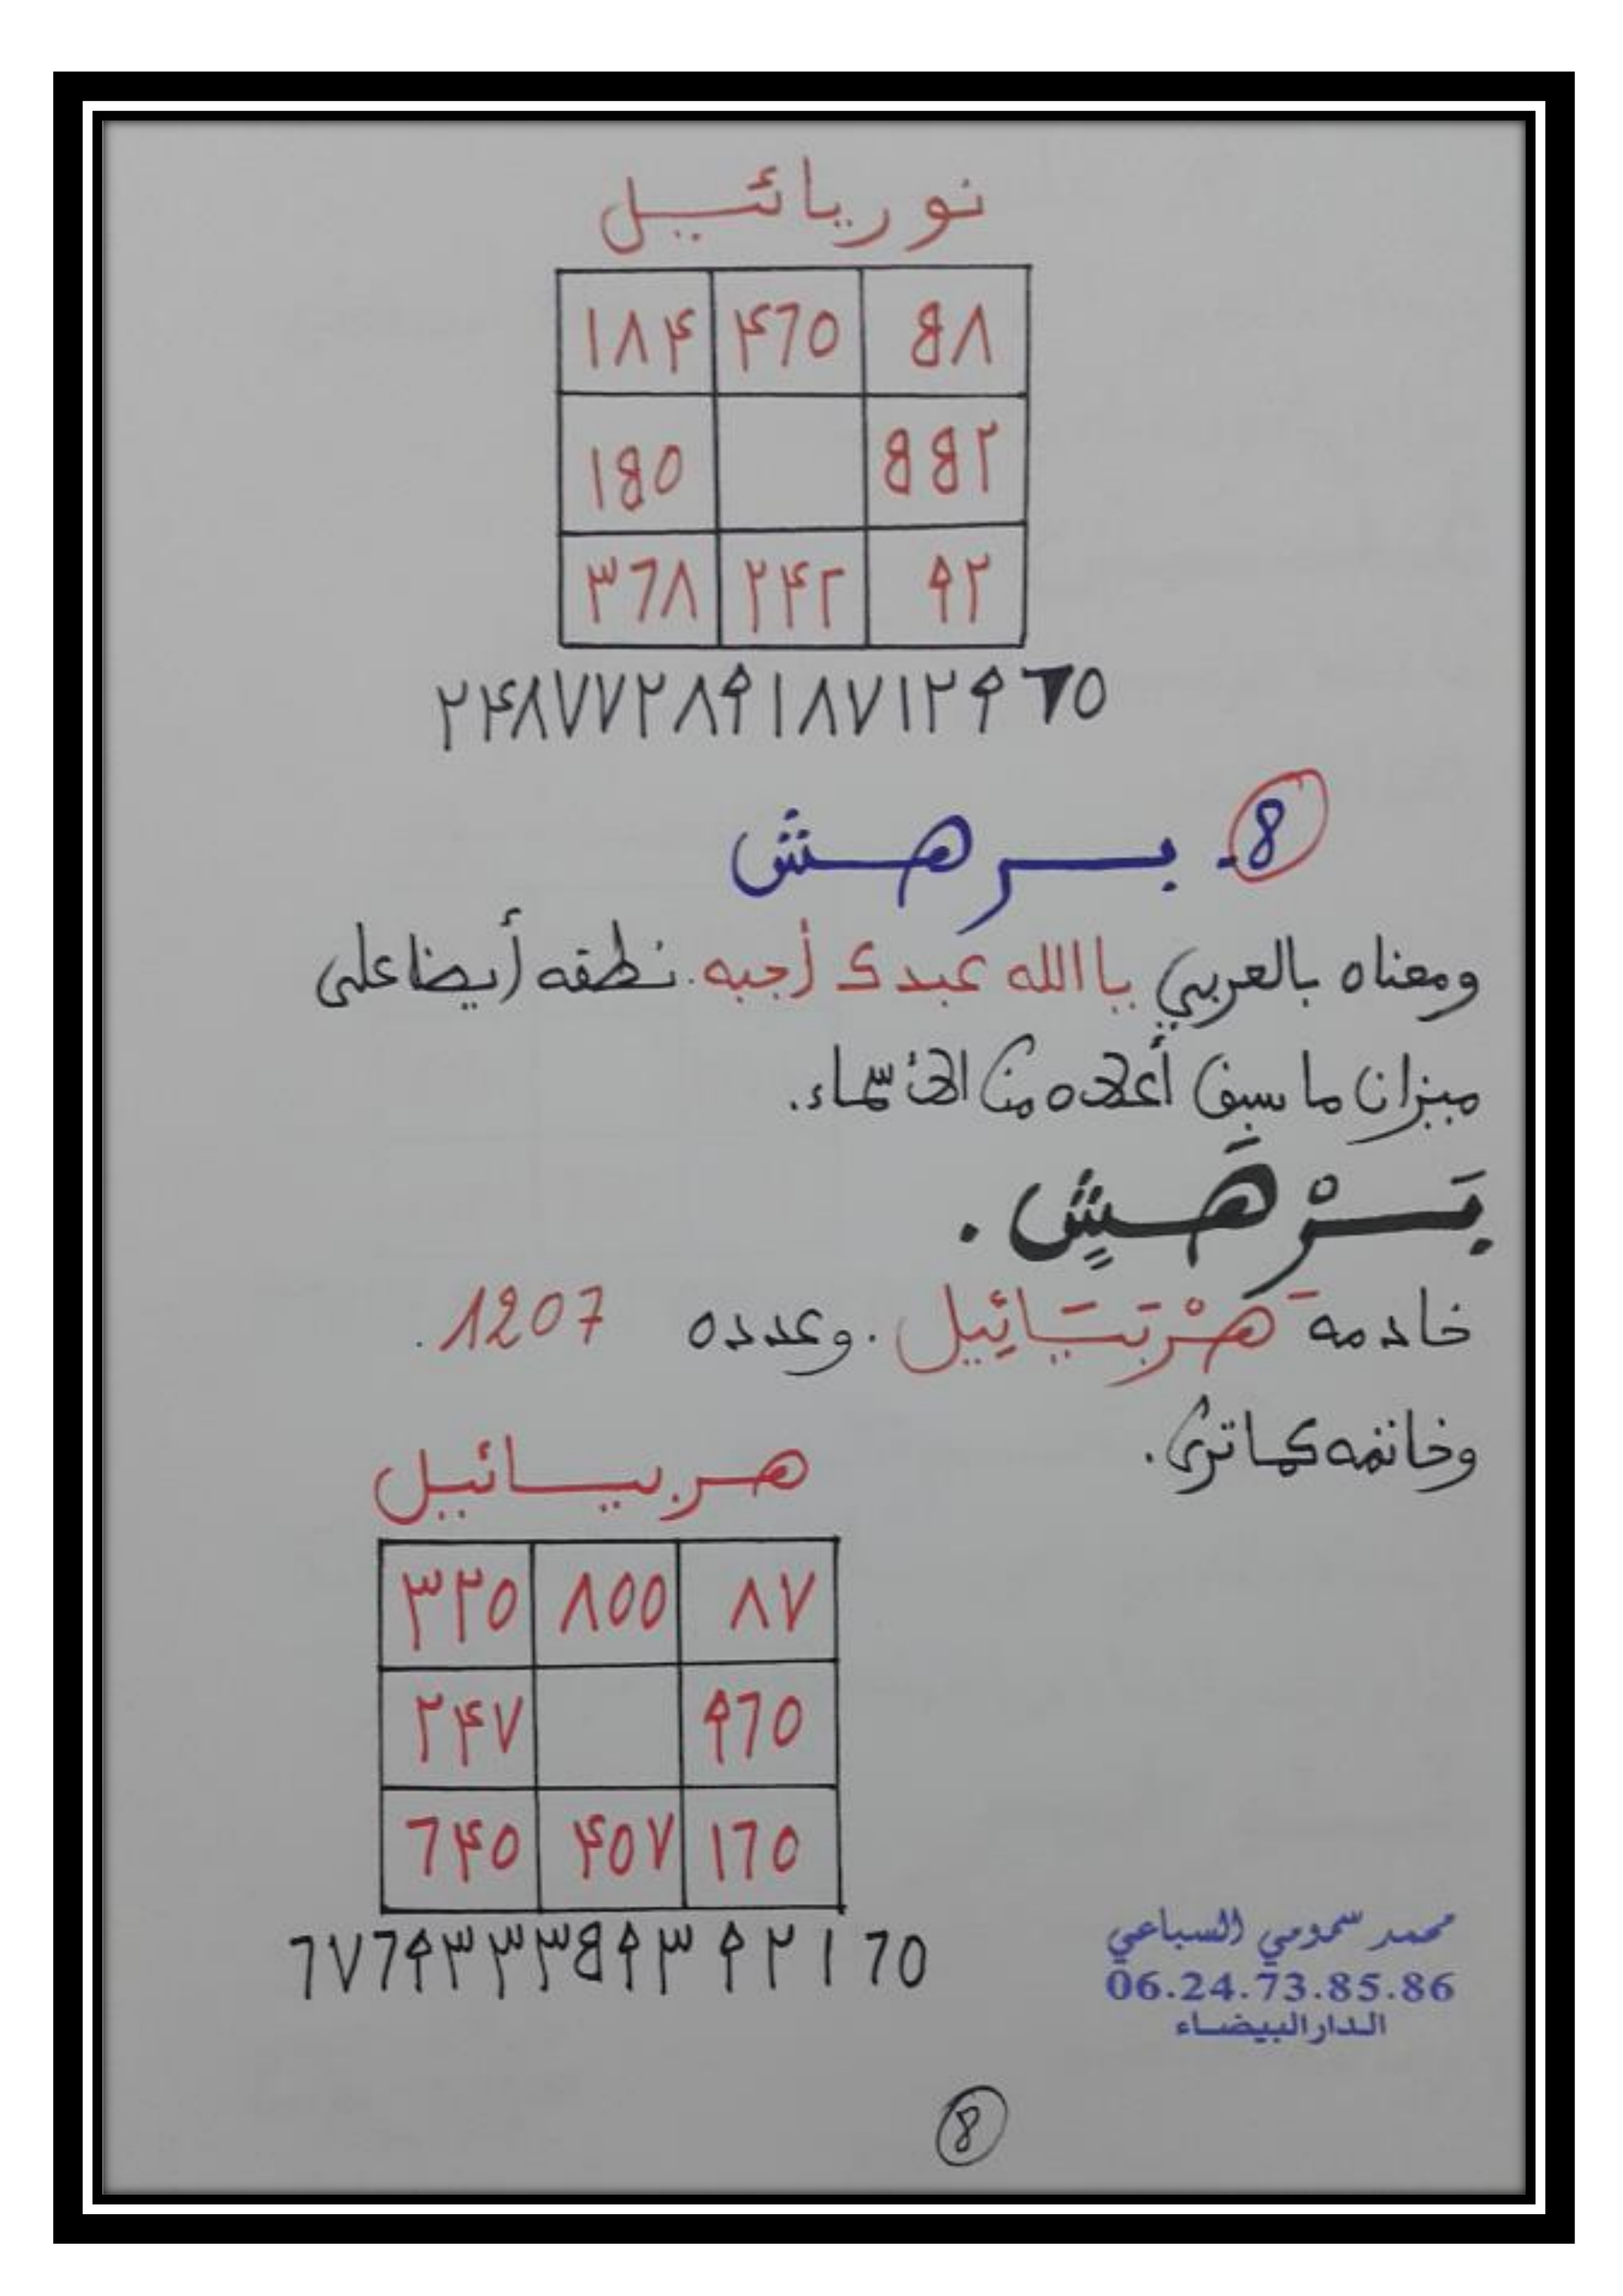 نوريائيل
١٨۴ ۴٦٥ 8٨
١8٥ 88٢
٣٦٨ ٢۴٢ ٩٢
٢۴٨٧٧٢٨٩١٨٧١٢٩٦٥
8- برهش
ومعناه بالعربي يا الله عبدك أجبه. نطقه أيضا على
ميزان ما سبق أعلاه من الأسماء.
بَرْهَشٍ .
خادمه هَرْبَيَائِيل . وعدده 1207 .
وخاتمه كما ترى.
هربيائيل
٣٢٥ ٨٥٥ ٨٧
٢۴٧ ٩٦٥
٦۴٥ ۴٥٧ ١٦٥
٦٧٦٩٣٣٣8٩٣٩٢١٦٥
محمد سمومي السباعي
06.24.73.85.86
الدار البيضاء
8